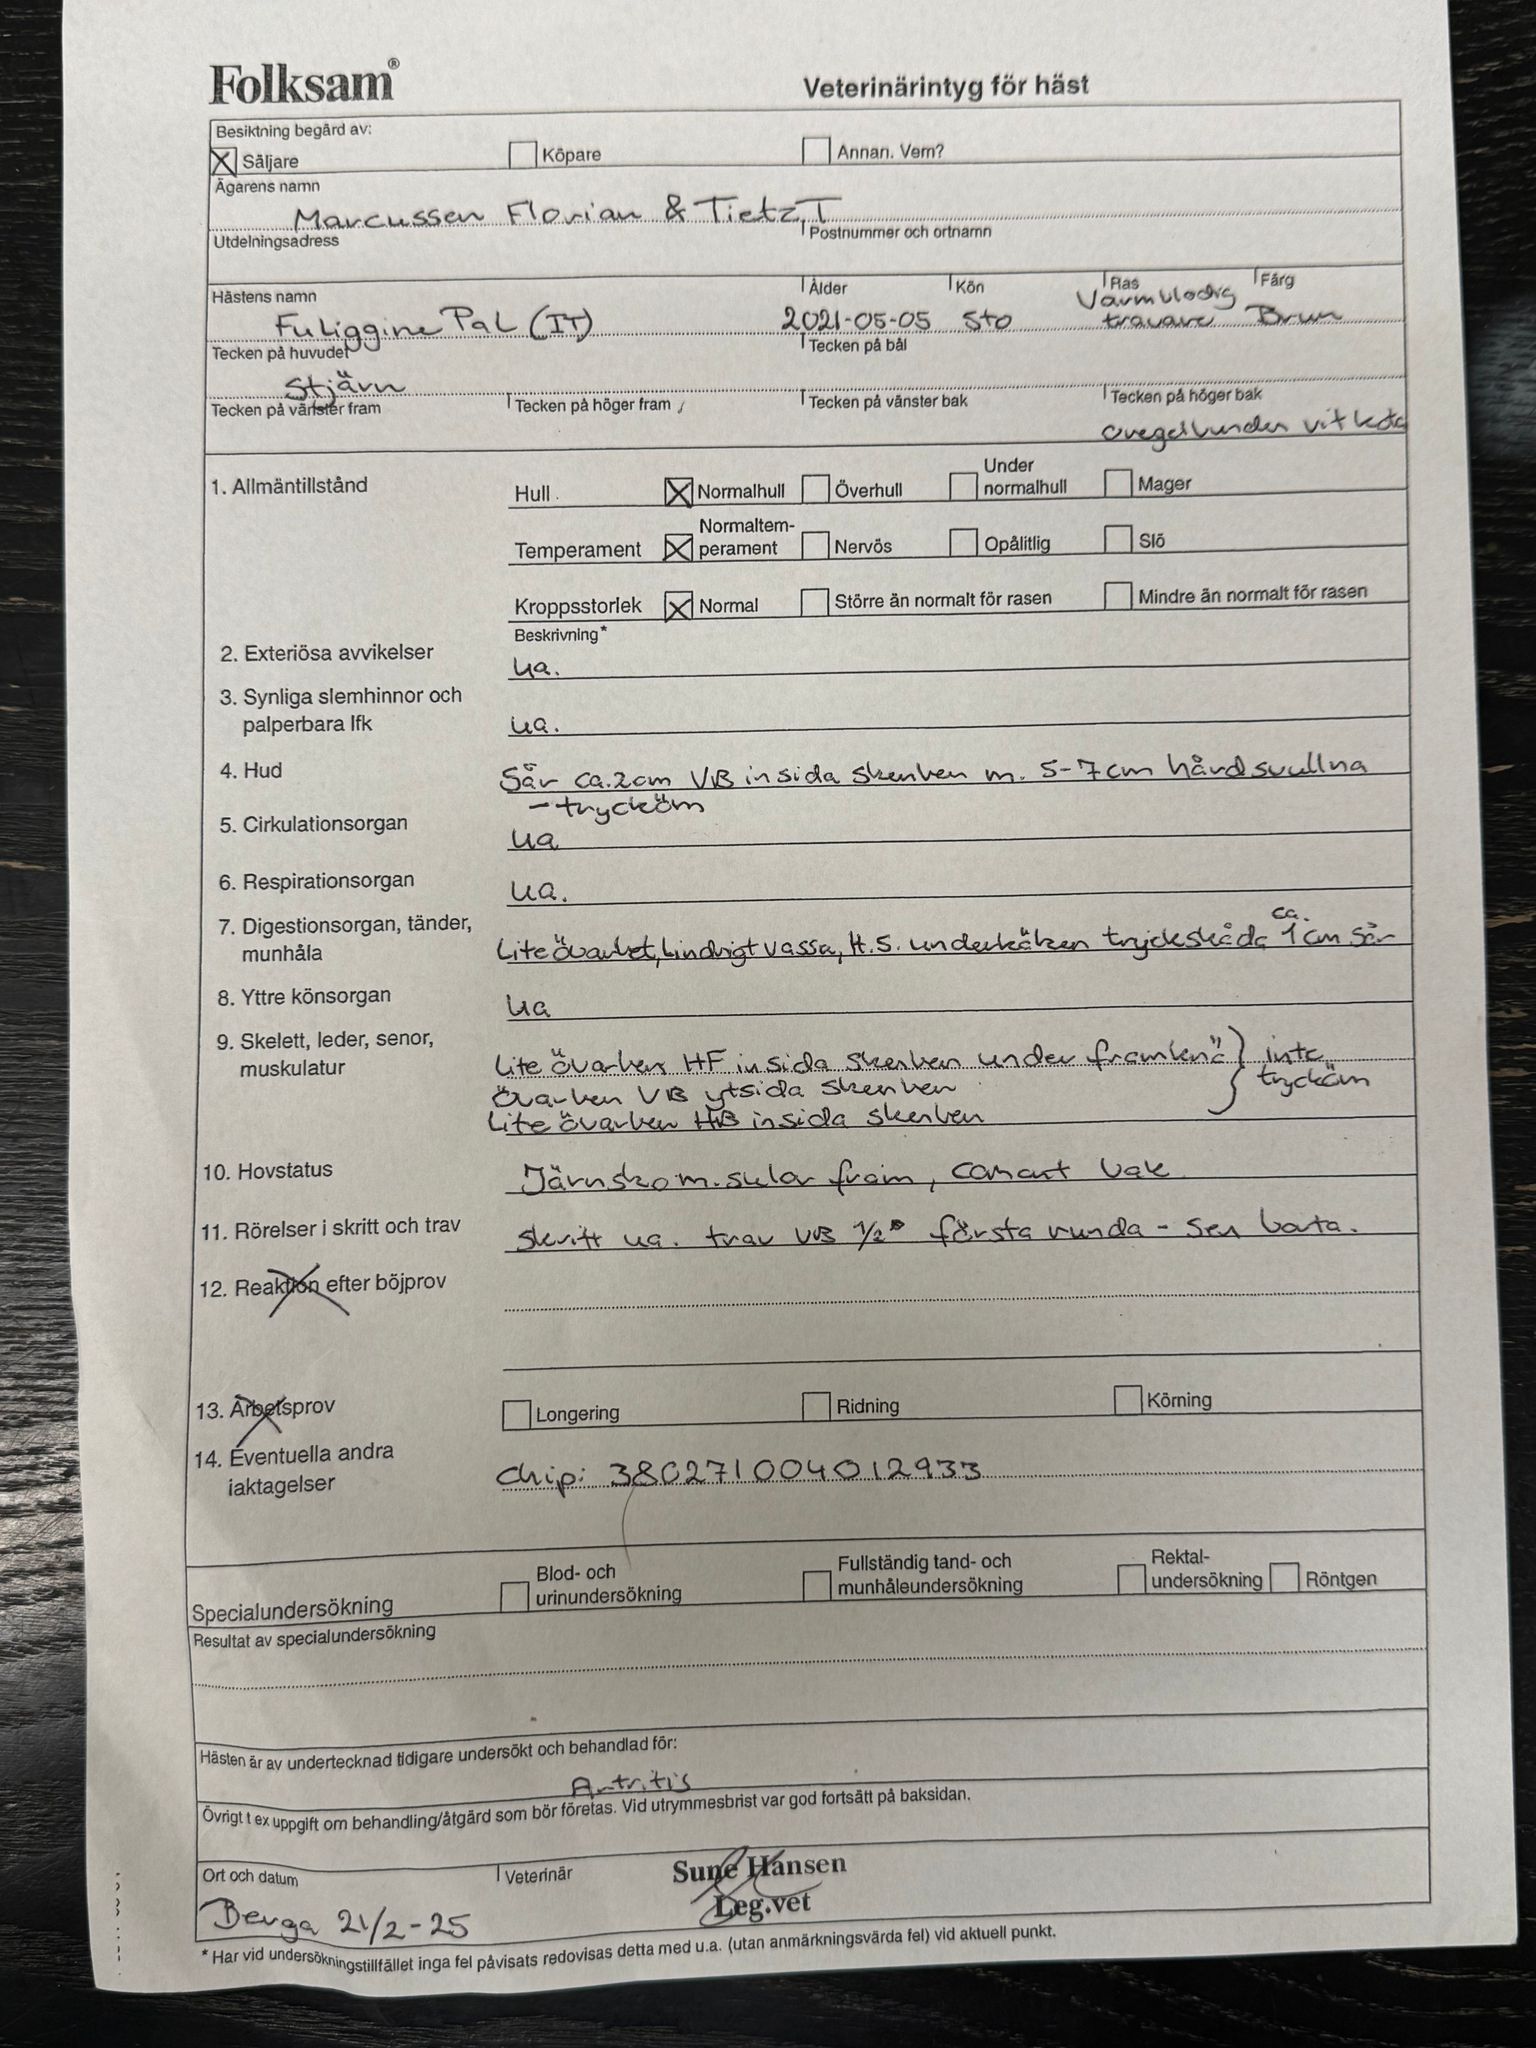 Folksam®
Veterinärintyg för häst
Besiktning begärd av:
Säljare Köpare Annan. Vem?
Ägarens namn
Marcussen Florian & Tietz, T
Utdelningsadress Postnummer och ortnamn
Hästens namn Ålder Kön Ras Färg
Fuliggine Pal (IT) 2021-05-05 Sto Varmblodig travare Brun
Tecken på huvudet Tecken på bål
Stjärn
Tecken på vänster fram Tecken på höger fram Tecken på vänster bak Tecken på höger bak
oregelbunden vit kota
1. Allmäntillstånd
Hull Normalhull Överhull Under normalhull Mager
Temperament Normaltem-perament Nervös Opålitlig Slö
Kroppsstorlek Normal Större än normalt för rasen Mindre än normalt för rasen
Beskrivning*
2. Exteriösa avvikelser ua.
3. Synliga slemhinnor och
palperbara lfk ua.
4. Hud Sår ca. 2cm VB insida skenben m. 5-7cm hård svullna
- tryköm
5. Cirkulationsorgan ua
6. Respirationsorgan ua.
7. Digestionsorgan, tänder,
munhåla Lite övarbet, Lindrigt vassa, H.S. underkäken tryckskada ca. 1cm sår
8. Yttre könsorgan ua
9. Skelett, leder, senor,
muskulatur
Lite övarben HF insida skenben under framknä } inte
övarben VB ytsida skenben tryköm
Lite övarben HB insida skenben
10. Hovstatus Järnsko m. sulor fram, bak
11. Rörelser i skritt och trav skritt ua. trav VB 1/2° första runda - sen borta.
12. Reaktion efter böjprov
13. Arbetsprov Longering Ridning Körning
14. Eventuella andra
iaktagelser Chip: 380271004012933
Specialundersökning Blod- och urinundersökning Fullständig tand- och munhåleundersökning Rektal-undersökning Röntgen
Resultat av specialundersökning
Hästen är av undertecknad tidigare undersökt och behandlad för:
Artritis
Övrigt t ex uppgift om behandling/åtgärd som bör företas. Vid utrymmesbrist var god fortsätt på baksidan.
Ort och datum Veterinär
Sune Hansen
Leg.vet
Berga 21/2-25
* Har vid undersökningstillfället inga fel påvisats redovisas detta med u.a. (utan anmärkningsvärda fel) vid aktuell punkt.